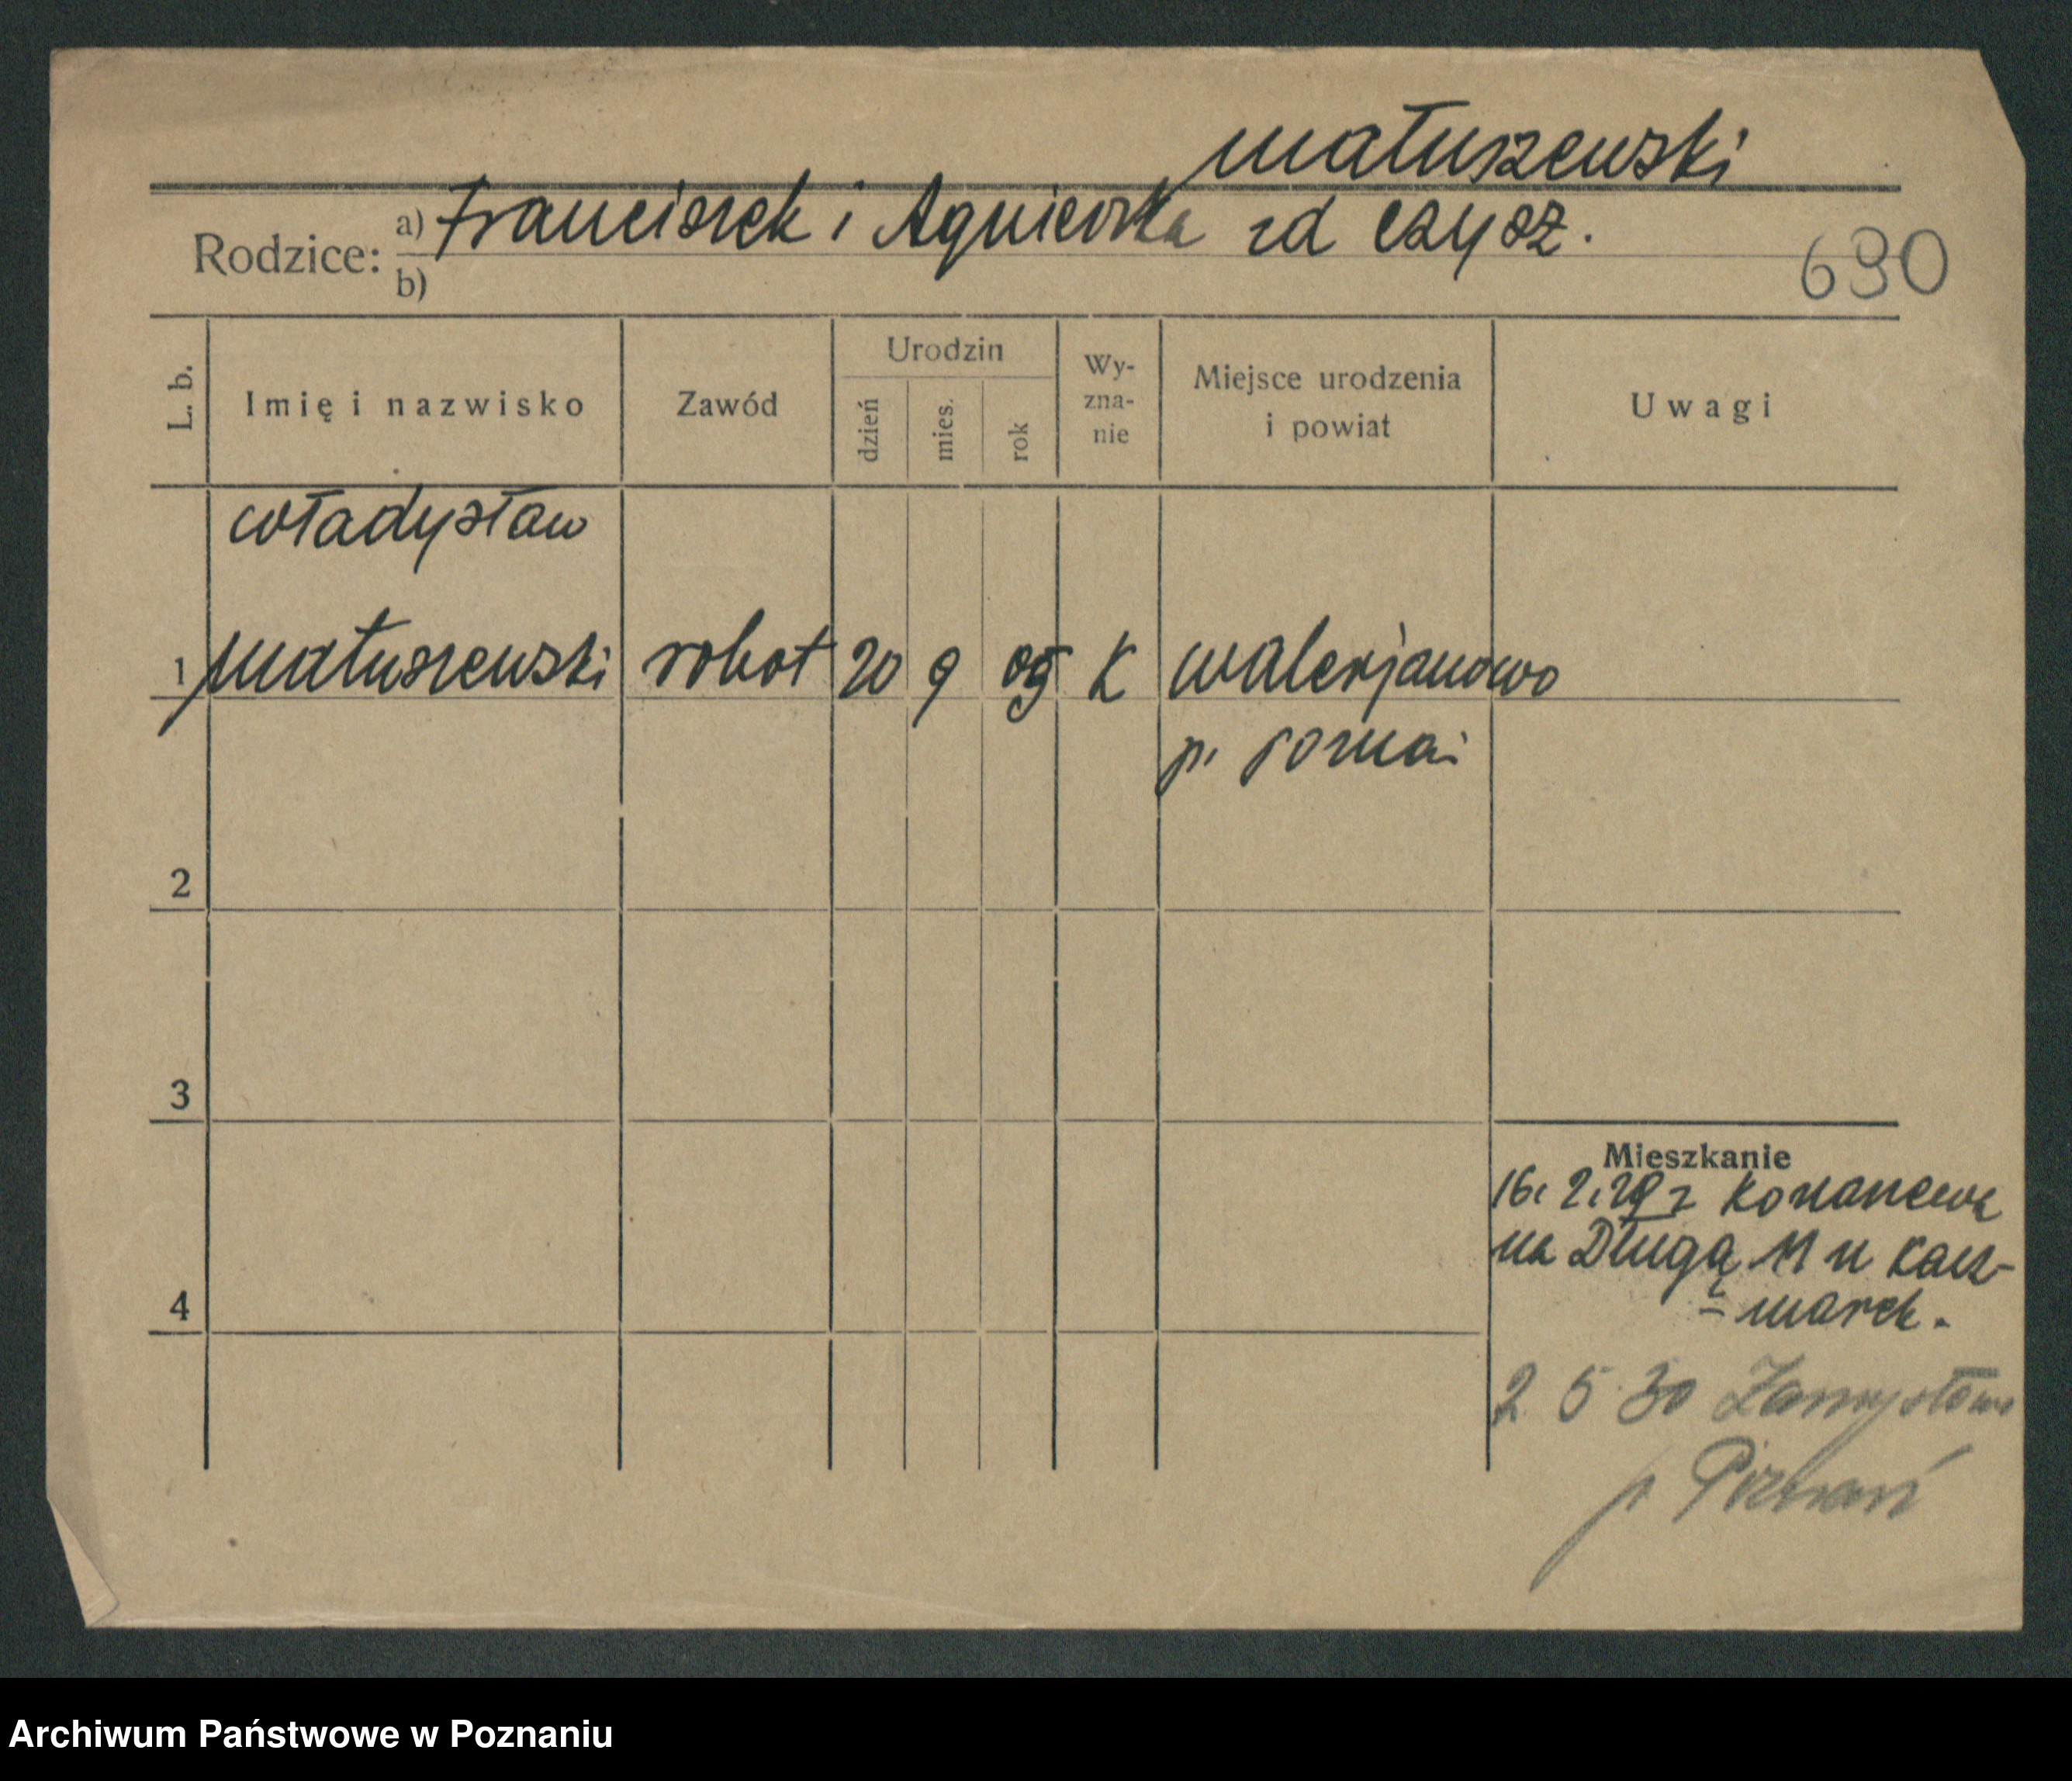 Matuszewski
Rodzice: a) Franciszek i Agnieszka zd Czysz.
b)
690
L. b.
Imię i nazwisko
Zawód
Urodzin
dzień
mies.
rok
Wy-
zna-
nie
Miejsce urodzenia
i powiat
Uwagi
Władysław
1 Matuszewski robot 20 9 09 K Walerjanowo
p. Poznań
2
3
Mieszkanie
16. 2. 29 z
na Długą 11 u Kacz-
4
- marek.
2 5 30 Zamysłowo
p Poznań
Archiwum Państwowe w Poznaniu